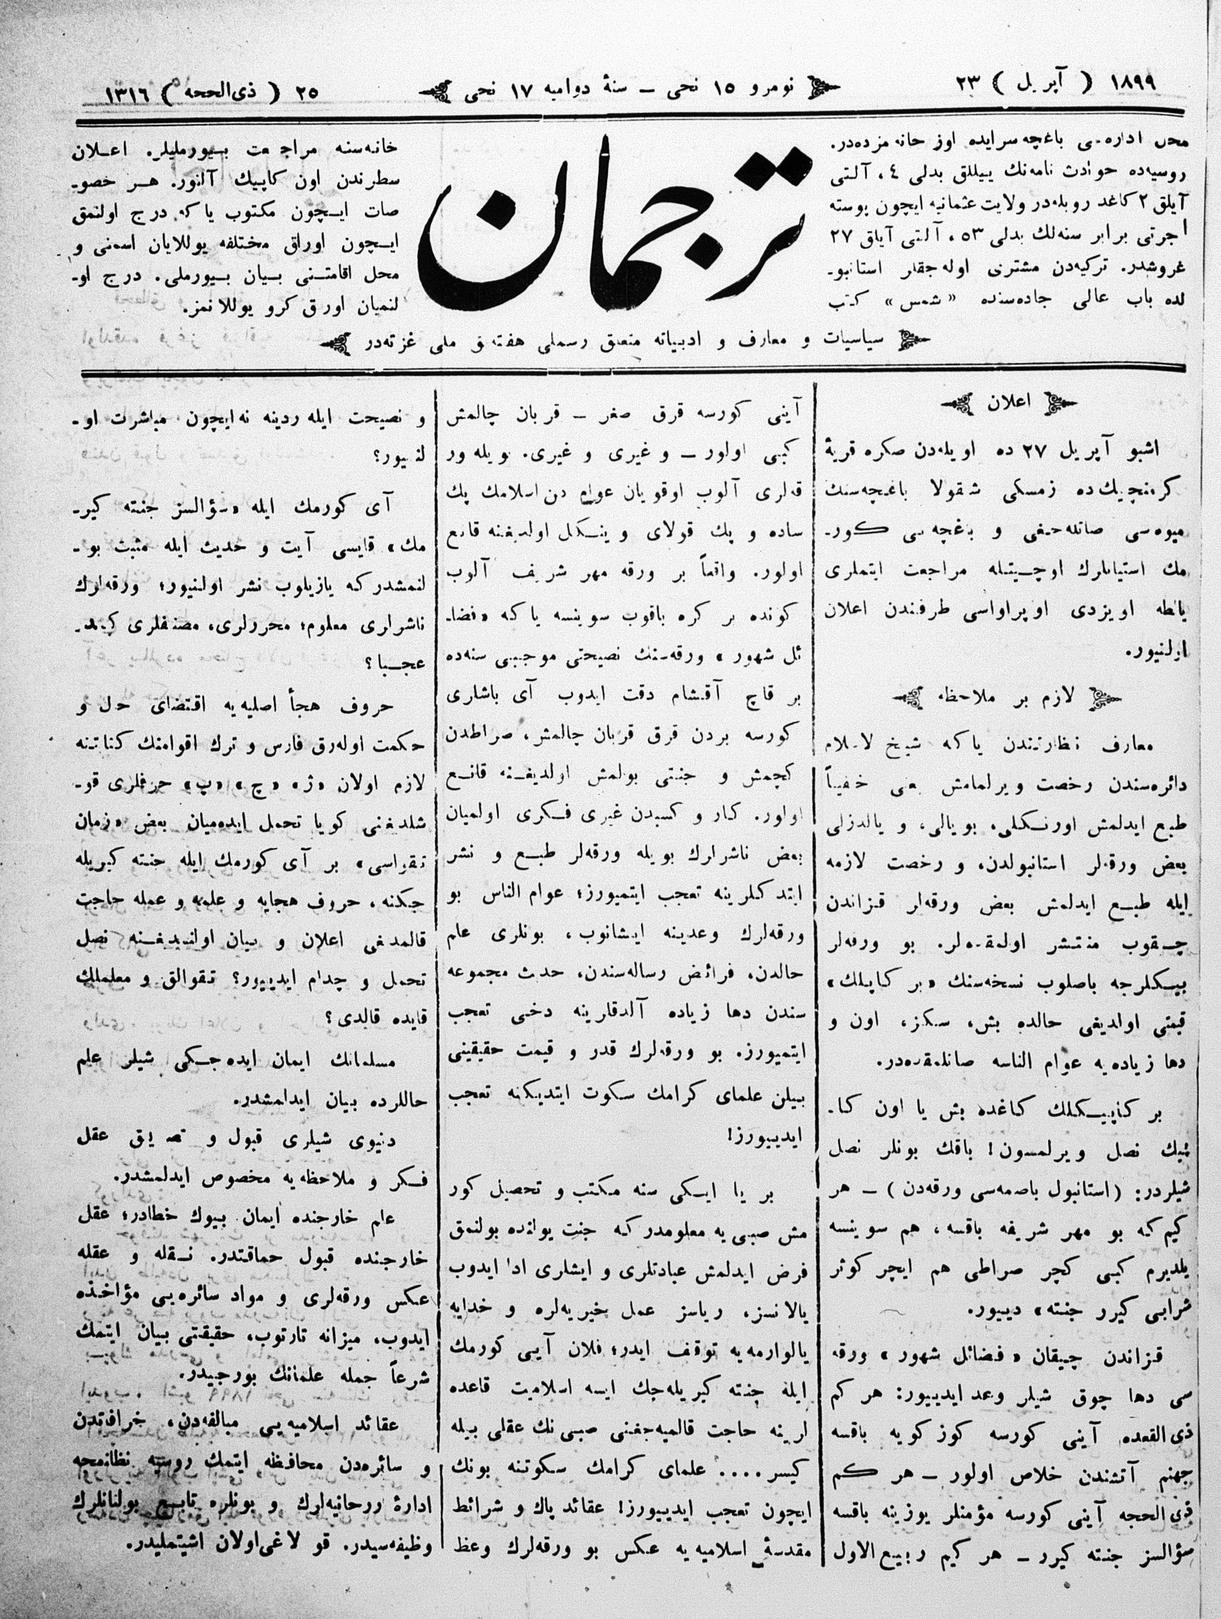 ١٨٩٩ ( آپریل ) ٢٣
نومرو ١٥ نجی — سنهٔ دوامیه ١٧ نجی
٢٥ ( ذی‌الحجه ) ١٣١٦
محل اداره‌سی باغچه‌سرایده اوز خانه‌مزده‌در.
روسیه‌ده حوادث نامه‌نك ییللق بدلی ٤، آلتی
آیلق ٢ كاغد روبله‌در ولایت عثمانیه ایچون بوسته
اجرتی برابر سنه‌لك بدلی ٥٣، آلتی آیاق ٢٧
غروشدر. تركیه‌دن مشتری اوله‌جقلر استانبو-
لده باب عالی جاده‌سنده «شمس» كتب
ترجمان
خانه‌سنه مراجعت بیورملیلر. اعلان
سطرندن اون كاپیك آلنور. هر خصو-
صات ایچون مكتوب یاكه درج اولنمق
ایچون اوراق مختلفه یوللایان اسمنی و
محل اقامتنی بیان بیورملی. درج او-
لنمیان اوراق كرو یوللانمز.
سیاسیات و معارف و ادبیاته متعلق رسملی هفته‌لق ملی غزته‌در
اعلان
اشبو آپریل ٢٧ ده اویله‌دن صكره قریهٔ
كرمنچیك‌ده زمسكی شقولا باغچه‌سنك
میوه‌سی صاتله‌جغی و باغچه‌یی كور-
مك استیانلرك اوچیتله مراجعت ایتملری
یالطه اویزدی اوپراواسی طرفندن اعلان
اولنیور.
لازم بر ملاحظه
معارف نظارتندن یاكه شیخ الاسلام
دائره‌سندن رخصت ویرلمامش یعنی خفیاً
طبع ایدلمش اورنكلی، بویالی، و یالدزلی
بعض ورقه‌لر استانبولدن، و رخصت لازمه
ایله طبع ایدلمش بعض ورقه‌لر قزاندن
چیقوب منتشر اولمقده‌لر. بو ورقه‌لر
بیكلرجه باصلوب نسخه‌سنك «بر كاپیلك»
قیمتی اولدیغی حالده بش، سكز، اون و
دها زیاده‌یه عوام الناسه صاتلمقده‌در.
بر كاپییكلك كاغده بش یا اون كا-
پیك نصل ویرلمسون! باقك بونلر نصل
شیلردر: (استانبول باصمه‌سی ورقه‌دن) — هر
كیم كه بو مهر شریفه باقسه، هم سوینسه
یلدیرم كبی كچر صراطی هم ایچر كوثر
شرابی كیرر جنته» دییور.
قزاندن چیقان «فضائل شهور» ورقه
سی دها چوق شیلر وعد ایدییور: هر كم
ذی‌القعده آینی كورسه كوز كویه باقسه
جهنم آتشندن خلاص اولور — هر كم
ذی‌الحجه آینی كورسه مؤمنلر یوزینه باقسه
سؤالسز جنته كیرر — هر كیم ربیع‌الاول
آینی كورسه قرق صغر — قربان چالمش
كبی اولور — و غیری و غیری. بویله ور
قه‌لری آلوب اوقویان عوام دین اسلامك پك
ساده و پك قولای و ینكل اولدیغنه قانع
اولور. واقعاً بر ورقه مهر شریف آلوب
كونده بر كره باقوب سوینسه یاكه «فضا-
ئل شهور» ورقه‌سنك نصیحتی موجبی سنه‌ده
بر قاچ آقشام دقت ایدوب آی باشاری
كورسه بردن قرق قربان چالمش، صراطدن
كچمش و جنتی بولمش اولدیغنه قانع
اولور. كار و كسبدن غیری فكری اولمیان
بعض ناشرلرك بویله ورقه‌لر طبع و نشر
ایتدكلرینه تعجب ایتمیورز؛ عوام الناس بو
ورقه‌لرك وعدینه ایشانوب، بونلری علم
حالدن، فرائض رساله‌سندن، حدث مجموعه
سندن دها زیاده آلدقارینه دخی تعجب
ایتمیورز. بو ورقه‌لرك قدر و قیمت حقیقینی
بیلن علمای كرامك سكوت ایتدیكنه تعجب
ایدییورز!
بر یا ایكی سنه مكتب و تحصیل كور
مش صبی‌یه معلومدر كه جنت یولنده بولنمق
فرض ایدلمش عبادتلری و ایشلری ادا ایدوب
یالانسز، ریاسز عمل خیریه‌لره و خدایه
یالوارمه‌یه توقف ایدر؛ فلان آیی كورمك
ایله جنته كیریله‌جك ایسه اسلامیت قاعده
لرینه حاجت قالمیه‌جغنی صبی‌نك عقلی بیله
كیسر.... علمای كرامك سكوتنه بونك
ایچون تعجب ایدییورز! عقائد پاك و شرائط
مقدسهٔ اسلامیه‌یه عكس بو ورقه‌لرك وعظ
و نصیحت ایله ردینه نه‌ایچون مباشرت او-
لنمیور؟
آی كورمك ایله «سؤالسز جنته كیر-
مك» قایسی آیت و حدیث ایله مثبت بو-
لنمشدركه یازیلوب نشر اولنیور؛ ورقه‌لرك
ناشراری معلوم؛ محررلری، مصنفلری كیملر
عجبا؟
حروف هجأ اصلیه‌یه اقتضای حال و
حكمت اوله‌رق فارس و ترك اقوامنك كتابتنه
لازم اولان «ژ» «چ» «پ» حرفلری قو-
شلدیغنی كویا تحمل ایده‌میان بعض «زمان
تقواسی» بر آی كورمك ایله جنته كیریله
جكنه، حروف هجایه و علمه و عمله حاجت
قالمدغی اعلان و بیان اولنمیدیغنه نصل
تحمل و چدام ایدییور؟ تقوالق و معلملك
قایده قالدی؟
مسلمانك ایمان ایده‌جكی شیلر علم
حاللرده بیان ایدلمشدر.
دنیوی شیلری قبول و تصدیق عقل
فكر و ملاحظه‌یه مخصوص ایدلمشدر.
علم خارجنده ایمان بیوك خطادر؛ عقل
خارجنده قبول حماقتدر. نقله و عقله
عكس ورقه‌لری و مواد سائره‌یی مؤاخذه
ایدوب، میزانه تارتوب، حقیقتی بیان ایتمك
شرعاً جمله علمانك بورجیدر.
عقائد اسلامیه‌یی مبالغه‌دن، خرافاتدن
و سائره‌دن محافظه ایتمك روسیه نظامنجه
ادارهٔ روحانیه‌لرك و بونلره تابع بولنانلرك
وظیفه‌سیدر. قولاغی‌اولان اشیتملیدر.